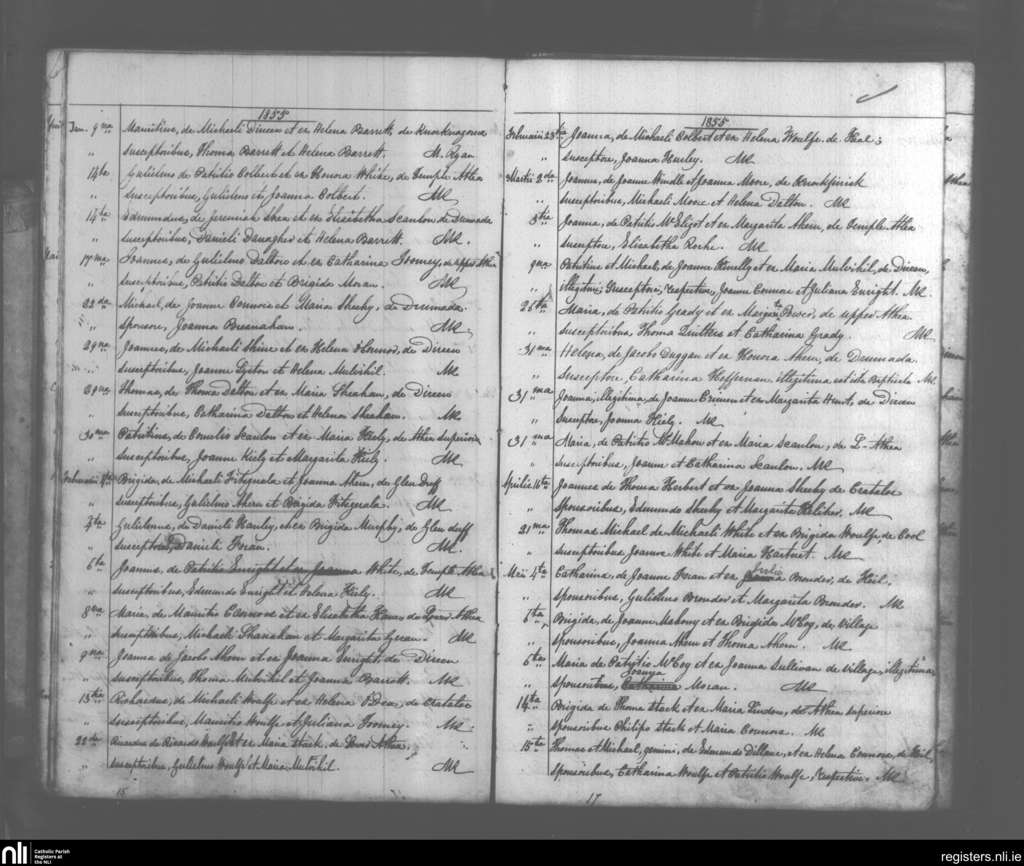 1855
Jan. 9na Mauritius, de Michaeli Direen et ex Helena Barrett, de Knocknagorna
" susceptoribus, Thoma Barrett et Helena Barrett. M. Ryan
14ta Gulielmus de Patritio Colbert et ex Honora White, de Temple Athea
" susceptoribus, Gulielmo et Joanna Colbert. MR
14ta Edmundus, de Jeremiah Shea et ex Elisabetha Scanlon de Dirrinada
" susceptoribus, Danieli Danagher et Helena Barrett. MR.
17ma Joannes, de Gulielmo Dalton et ex Catharina Twomey, de upper Athea
" susceptoribus, Patritio Dalton et Brigida Moran. MR
22da Michael, de Joanne Connors et Maria Sheehy, de Dirrinada.
" sponsore, Joanna Bresnahan. MR
29na Joannes, de Michaeli Shine et ex Helena O'Connor, de Direen
" susceptoribus, Joanne Liston et Helena Mulvihil. MR
29na Thomas, de Thoma Dalton et ex Maria Sheahan, de Direen
" susceptoribus, Catharina Dalton et Helena Sheahan. MR
30ma Patritius, de Cornelio Scanlon et ex Maria Kiely, de Athea Superiori
" susceptoribus, Joanne Kiely et Margarita Kiely. MR
Februarii Brigida, de Michaeli Fitzgerald et Joanna Ahern, de Glenduff
" susceptoribus, Gulielmo Ahern et Brigida Fitzgerald. MR
4ta Gulielmus, de Danieli Hanly, et ex Brigida Murphy, de Glenduff
" susceptore, Danieli Foran. MR.
6ta Joannes, de Patritio Enright et ex Joanna White, de Temple Athea
" susceptoribus, Edmundo Enright et Helena Kiely. MR
8va Maria, de Mauritio Connors et ex Elisabetha de Lower Athea
" susceptoribus, Michaeli Shanahan et Margarita MR
9na Joanna de Jacobo Ahern et ex Joanna Enright, de Direen
" susceptoribus, Thoma Mulvihil et Joanna Barrett. MR
13tia Richardus, de Michaeli Woulfe et ex Helena O'Dea, de Crataloe
" susceptoribus, Mauritio Woulfe et Juliana Twomey. MR.
22da Ricardus de Ricardo Woulfe et ex Maria Stack, de Lower Athea,
" susceptoribus, Gulielmo Woulfe et Maria Mulvihil. MR
1855
Februarii 23tia Joanna, de Michaeli Colbert et ex Helena Woulfe, de Keale;
" susceptore, Joanna Hurley. MR
Martii 2da Joanna, de Joanne Windle et Joanna Moore, de Knockfinisk
" susceptoribus, Michaeli Moore et Helena Dalton. MR
3tia Joanna, de Patritio McEligot et ex Margarita Ahern, de Temple Athea
" susceptore, Elisabetha Roche. MR
9na Patritius et Michael, de Joanne Kinelly et ex Maria Mulvihil, de Direen,
" illegitimi; susceptoribus, respective, Joanne Connor et Juliana Enright. MR.
25ta Maria, de Patritio Grady et ex Margarita de upper Athea
" susceptoribus Thoma et Catharina Grady. MR
31ma Helena, de Jacobo Duggan et ex Honora Ahern, de Dirrinada
" susceptore, Catharina Heffernan illegitima est ista Baptisata MR.
31ma Joanna, illegitima, de Joanne et ex Margarita Hunt, de Direen
" susceptore, Joanna Kiely. MR
31ma Maria, de Patritio McMahon et ex Maria Scanlon, de L-Athea
" susceptoribus, Joanne et Catharina Scanlon. MR
Aprilis 16ta Joannes de Thoma Herbert et ex Joanna Sheehy de Crataloe
" sponsoribus, Edmundo Sheehy et Margarita Keliher. MR
21ma Thomas Michael de Michaeli White et ex Brigida Woulfe de Cool
" susceptoribus Joanne White et Maria Hartnet. MR
Maii 4ta Catharina, de Joanne Foran et ex Julia Brouder, de Keil;
" sponsoribus, Gulielmo Brouder et Margarita Brouder. MR
5ta Brigida, de Joanne Mahony et ex Brigida McCoy, de Village
" sponsoribus, Joanna Ahern et Thoma Ahern. MR
6ta Maria de Patritio McCoy et ex Joanna Sullivan de Village, illegitima,
" sponsoribus, Joanna Catharina Moran. MR
14ta Brigida de Thoma Stack et ex Maria Lindon, de Athea superiore
" sponsoribus Philipo Stack et Maria Connors. MR
15ta Thomas et Michael, gemini, de Edmundo Dillane, et ex Helena Connors, de Keil,
sponsoribus, Catharina Woulfe et Patritio Woulfe, respective. MR
17
nli Catholic Parish
Registers at
the NLI
registers.nli.ie